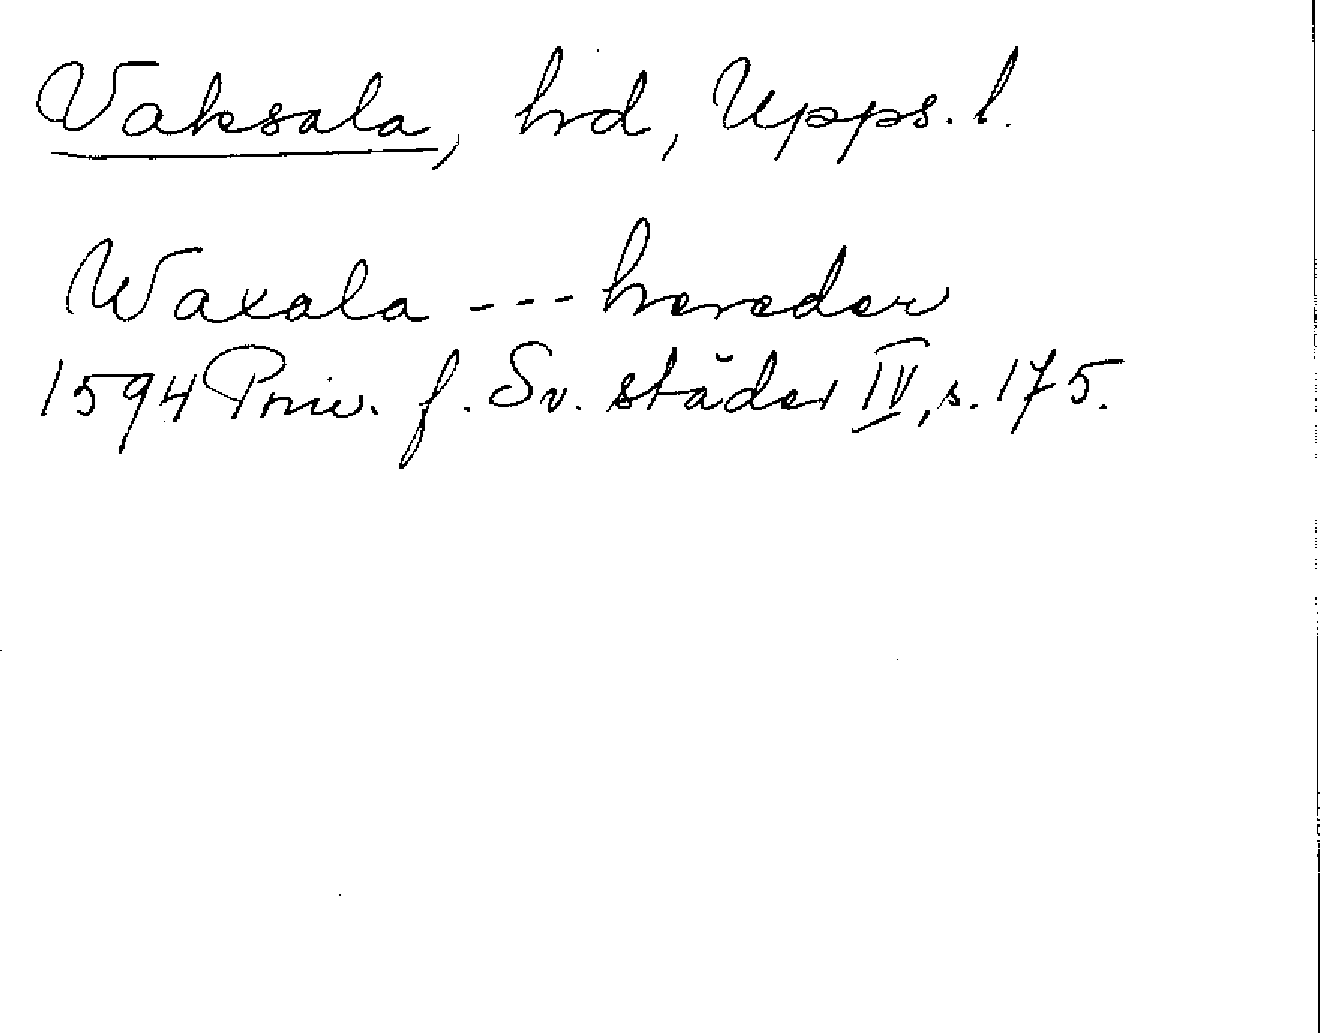 Vaksala, hrd, Upps. l.
Waxala --- hereder
1594 Priv. f. Sv. städer IV, s. 175.